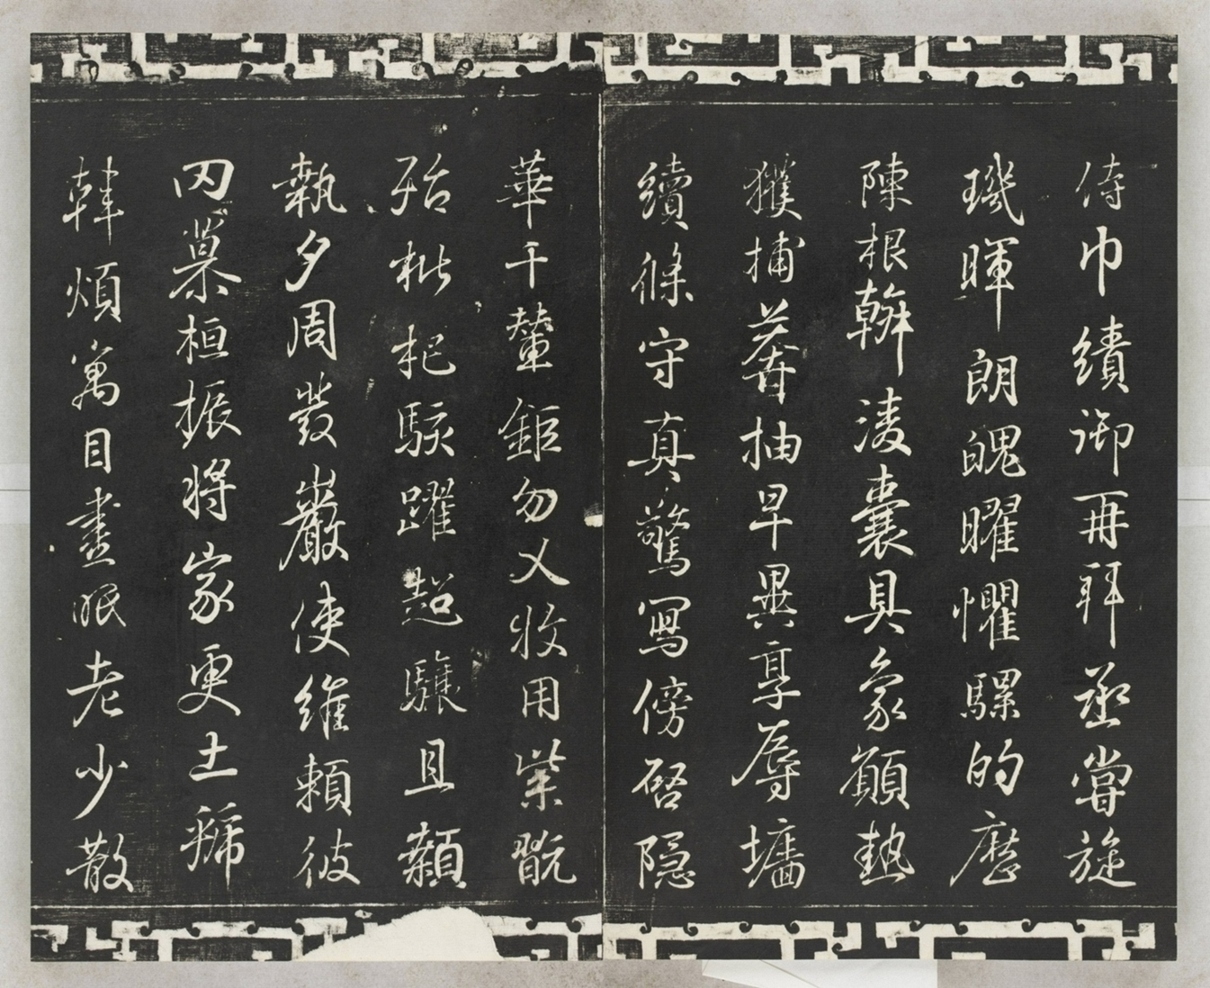 侍巾績御再拜丞嘗旋
璣暉朗魄曜懼騾的歷
陳根斡凌囊具象顧熱
獲捕莽抽早異享辱墻
續條守真驚寫傍啓隱
華千輦鉅勿乂收用紫翫
殆枇杷駭躍超驤且顙
執夕周發巖使維賴彼
罔慕桓振將家更土
韓煩寓目晝眠老少散